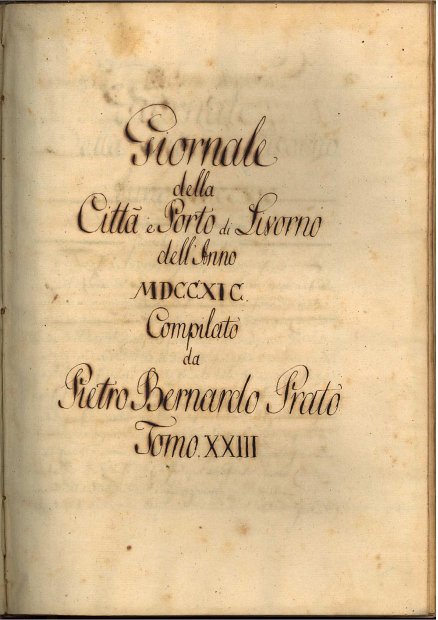 Giornale
della
Città e Porto di Livorno
dell'Anno
MDCCXIC.
Compilato
da
Pietro Bernardo Prato
Tomo. XXIII